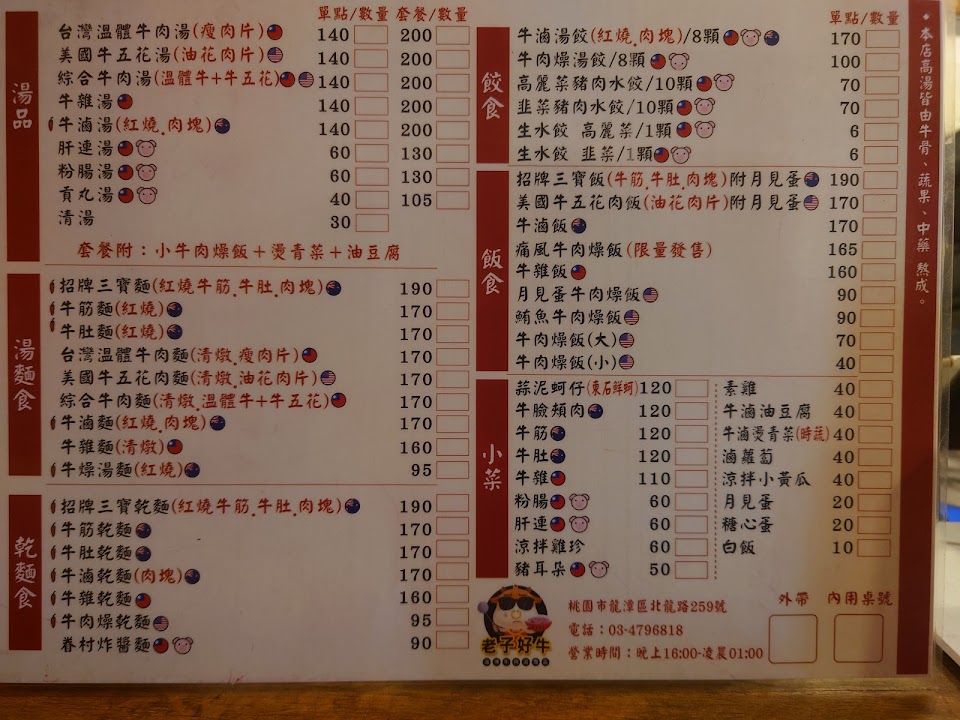 單點/數量 套餐/數量
湯品
台灣溫體牛肉湯(瘦肉片) 140 200
美國牛五花湯(油花肉片) 140 200
綜合牛肉湯(溫體牛+牛五花) 140 200
牛雜湯 140 200
牛滷湯(紅燒.肉塊) 140 200
肝連湯 60 130
粉腸湯 60 130
貢丸湯 40 105
清湯 30
套餐附:小牛肉燥飯+燙青菜+油豆腐
湯麵食
招牌三寶麵(紅燒牛筋.牛肚.肉塊) 190
牛筋麵(紅燒) 170
牛肚麵(紅燒) 170
台灣溫體牛肉麵(清燉.瘦肉片) 170
美國牛五花肉麵(清燉.油花肉片) 170
綜合牛肉麵(清燉.溫體牛+牛五花) 170
牛滷麵(紅燒.肉塊) 170
牛雜麵(清燉) 160
牛燥湯麵(紅燒) 95
乾麵食
招牌三寶乾麵(紅燒牛筋.牛肚.肉塊) 190
牛筋乾麵 170
牛肚乾麵 170
牛滷乾麵(肉塊) 170
牛雜乾麵 160
牛肉燥乾麵 95
眷村炸醬麵 90
單點/數量
餃食
牛滷湯餃(紅燒.肉塊)/8顆 170
牛肉燥湯餃/8顆 100
高麗菜豬肉水餃/10顆 70
韭菜豬肉水餃/10顆 70
生水餃 高麗菜/1顆 6
生水餃 韭菜/1顆 6
飯食
招牌三寶飯(牛筋.牛肚.肉塊)附月見蛋 190
美國牛五花肉飯(油花肉片)附月見蛋 170
牛滷飯 170
痛風牛肉燥飯(限量發售) 165
牛雜飯 160
月見蛋牛肉燥飯 90
鮪魚牛肉燥飯 90
牛肉燥飯(大) 70
牛肉燥飯(小) 40
小菜
蒜泥蚵仔(東石鮮蚵) 120
牛臉頰肉 120
牛筋 120
牛肚 120
牛雜 110
粉腸 60
肝連 60
涼拌雞珍 60
豬耳朵 50
素雞 40
牛滷油豆腐 40
牛滷燙青菜(時蔬) 40
滷蘿蔔 40
涼拌小黃瓜 40
月見蛋 20
糖心蛋 20
白飯 10
老子好牛
桃園市龍潭區北龍路259號
電話:03-4796818
營業時間:晚上16:00-凌晨01:00
外帶 內用桌號
•本店高湯皆由牛骨、蔬果、中藥 熬成。